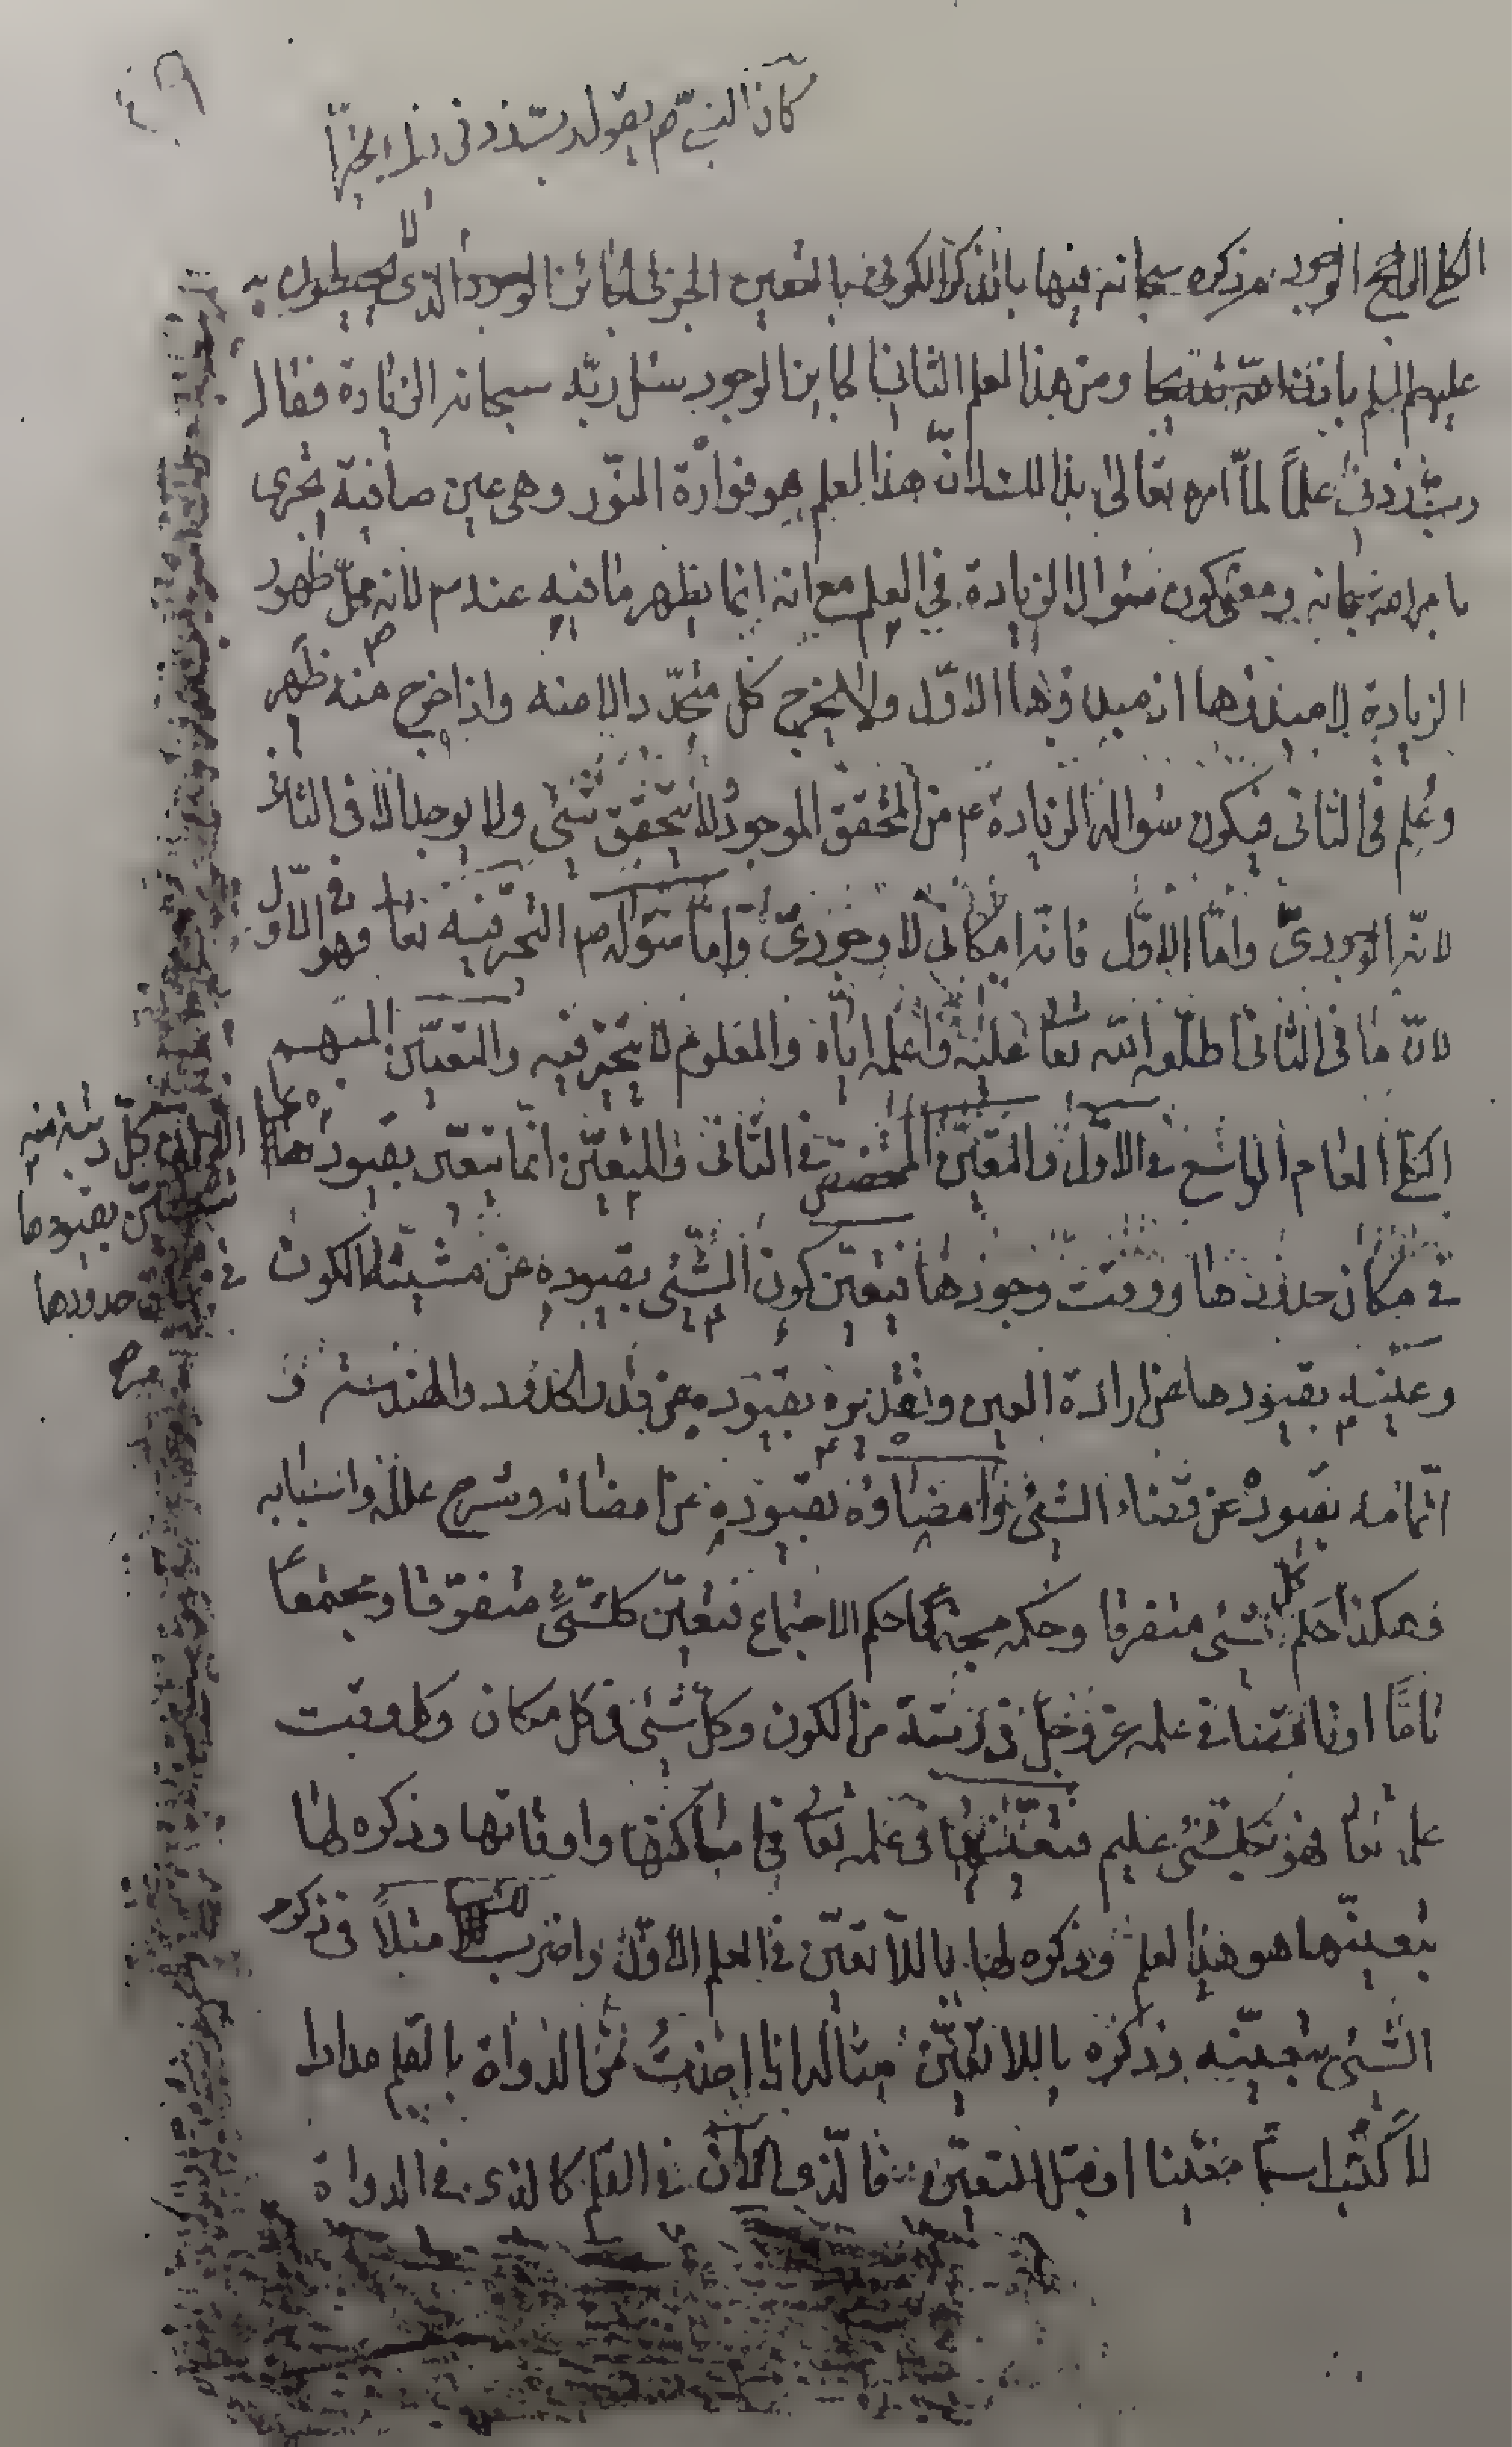 ٤٩
كان النبي ص يقول رب زدني
الكلي الراجح الوجود ذكره سبحانه فيها بالذكر الكوني بالتعين الجزئي الجائز الوجود الذي لا يحيطون به
عليهم السلم ومن هذا العلم الثاني الجايز الوجود سئل ربه سبحانه الزيادة فقال
رب زدني علماً لما امره تعالى بذلك لان هذا العلم هو فوارة النور وهي عين صافية تجرى
بامر الله سبحانه ومعنى كون سؤال الزيادة في العلم مع انه انما يظهر ما فيه عندهم لانه محل ظهور
الزيادة لا ميدؤها اذ ميدؤها الاول ولا يخرج كل متجدد الا منه واذا خرج منه ظهر
وعلم في الثاني فيكون سؤاله الزيادة من المحقق الموجود لا يتحقق شئ ولا يوجد الا في الثاني
لانه الوجودي واما الاول فانه امكاني لا وجودي واما سؤله ص التحير فيه تعا فهو في الاول
لان ما في الثاني اطلعه الله تعا عليه واعلمه اياه والمعلوم لا يتحير فيه والتعين المبهم
الكلي العام الواسع في الاول والتعين المشخص في الثاني والتعين انما تتعين بقيودها
تتعين بقيودها
في حدودها
في مكان حدودها ووقت وجودها فيتعين كون الشئ بقيوده عن مشيئة الكون
وعينه بقيودها عن ارادة العين وتقديره بقيوده عن قدر الحدود والهندسة و
اتمامه بقيوده عن قضاء الشئ وامضاؤه بقيوده عن امضائه وشرح علله واسبابه
فهكذا حكم كل شئ متفرقا وحكمه مجتمعا حكم الاجتماع فتعين كلشئ متفرقا ومجتمعا
تاما او ناقصا في علمه عز وجل في رتبته من الكون وكل شئ في كل مكان وكل وقت
علمه تعا فهو بكل شئ عليم فتعينها في علمه تعا في اماكنها واوقاتها وذكره لها
بتعينها هو هذا العلم وذكره لها باللا تعين في العلم الاول واضرب مثلاً في ذكر
الشئ بتعينه وذكره باللا تعين مثاله اذا اخذت من الدواة بالقلم مدادا
لتكتب اسما معينا او قبل التعين فالذي الان في القلم كالذي في الدواة